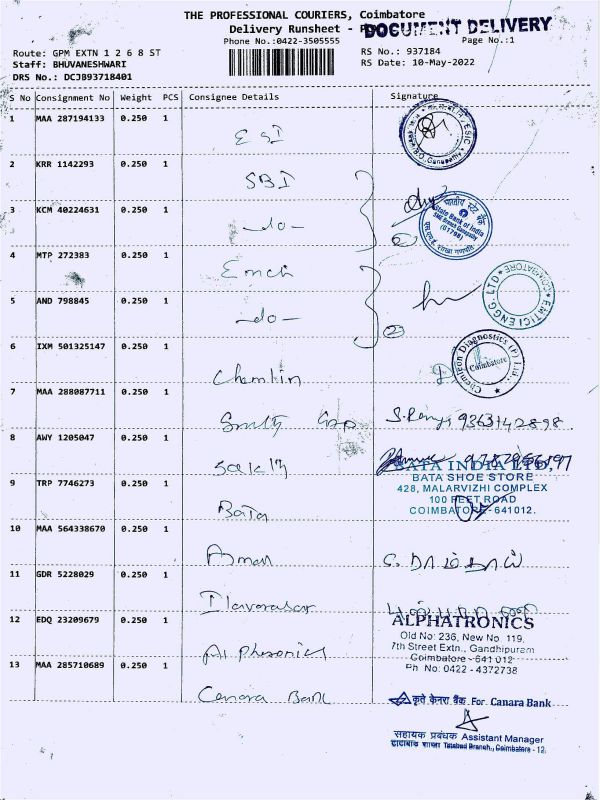 THE PROFESSIONAL COURIERS, Coimbatore
Delivery Runsheet -
DOCUMENT DELIVERY
Phone No.:0422-3505555
Page No.:1
Route: GPM EXTN 1 2 6 8 ST
RS No.: 937184
Staff: BHUVANESHWARI
RS Date: 10-May-2022
DRS No.: DCJB93718401
S No Consignment No Weight PCS Consignee Details Signature
1 MAA 287194133 0.250 1 ESI
2 KRR 1142293 0.250 1 SBI
3 KCM 40224631 0.250 1 -do-
भारतीय स्टेट बैंक
State Bank of India
(01768)
2
4 MTP 272383 0.250 1
5 AND 798845 0.250 1 -do-
EMTICI ENGG. LTD
COIMBATORE
2
6 IXM 501325147 0.250 1
Chemteon Diagnostics (P) Ltd.,
Coimbatore
7 MAA 288087711 0.250 1
8 AWY 1205047 0.250 1
9 TRP 7746273 0.250 1 Bata
BATA INDIA LTD,
BATA SHOE STORE
428, MALARVIZHI COMPLEX
100 FEET ROAD
COIMBATORE-641012.
10 MAA 564338670 0.250 1
11 GDR 5228029 0.250 1
12 EDQ 23209679 0.250 1
ALPHATRONICS
Old No: 236, New No. 119,
7th Street Extn., Gandhipuram
Coimbatore - 641 012
Ph No: 0422 - 4372738
13 MAA 285710689 0.250 1 Canara Bank
कृते केनरा बैंक For Canara Bank
सहायक प्रबंधक Assistant Manager
Tatabad Branch, Coimbatore - 12.